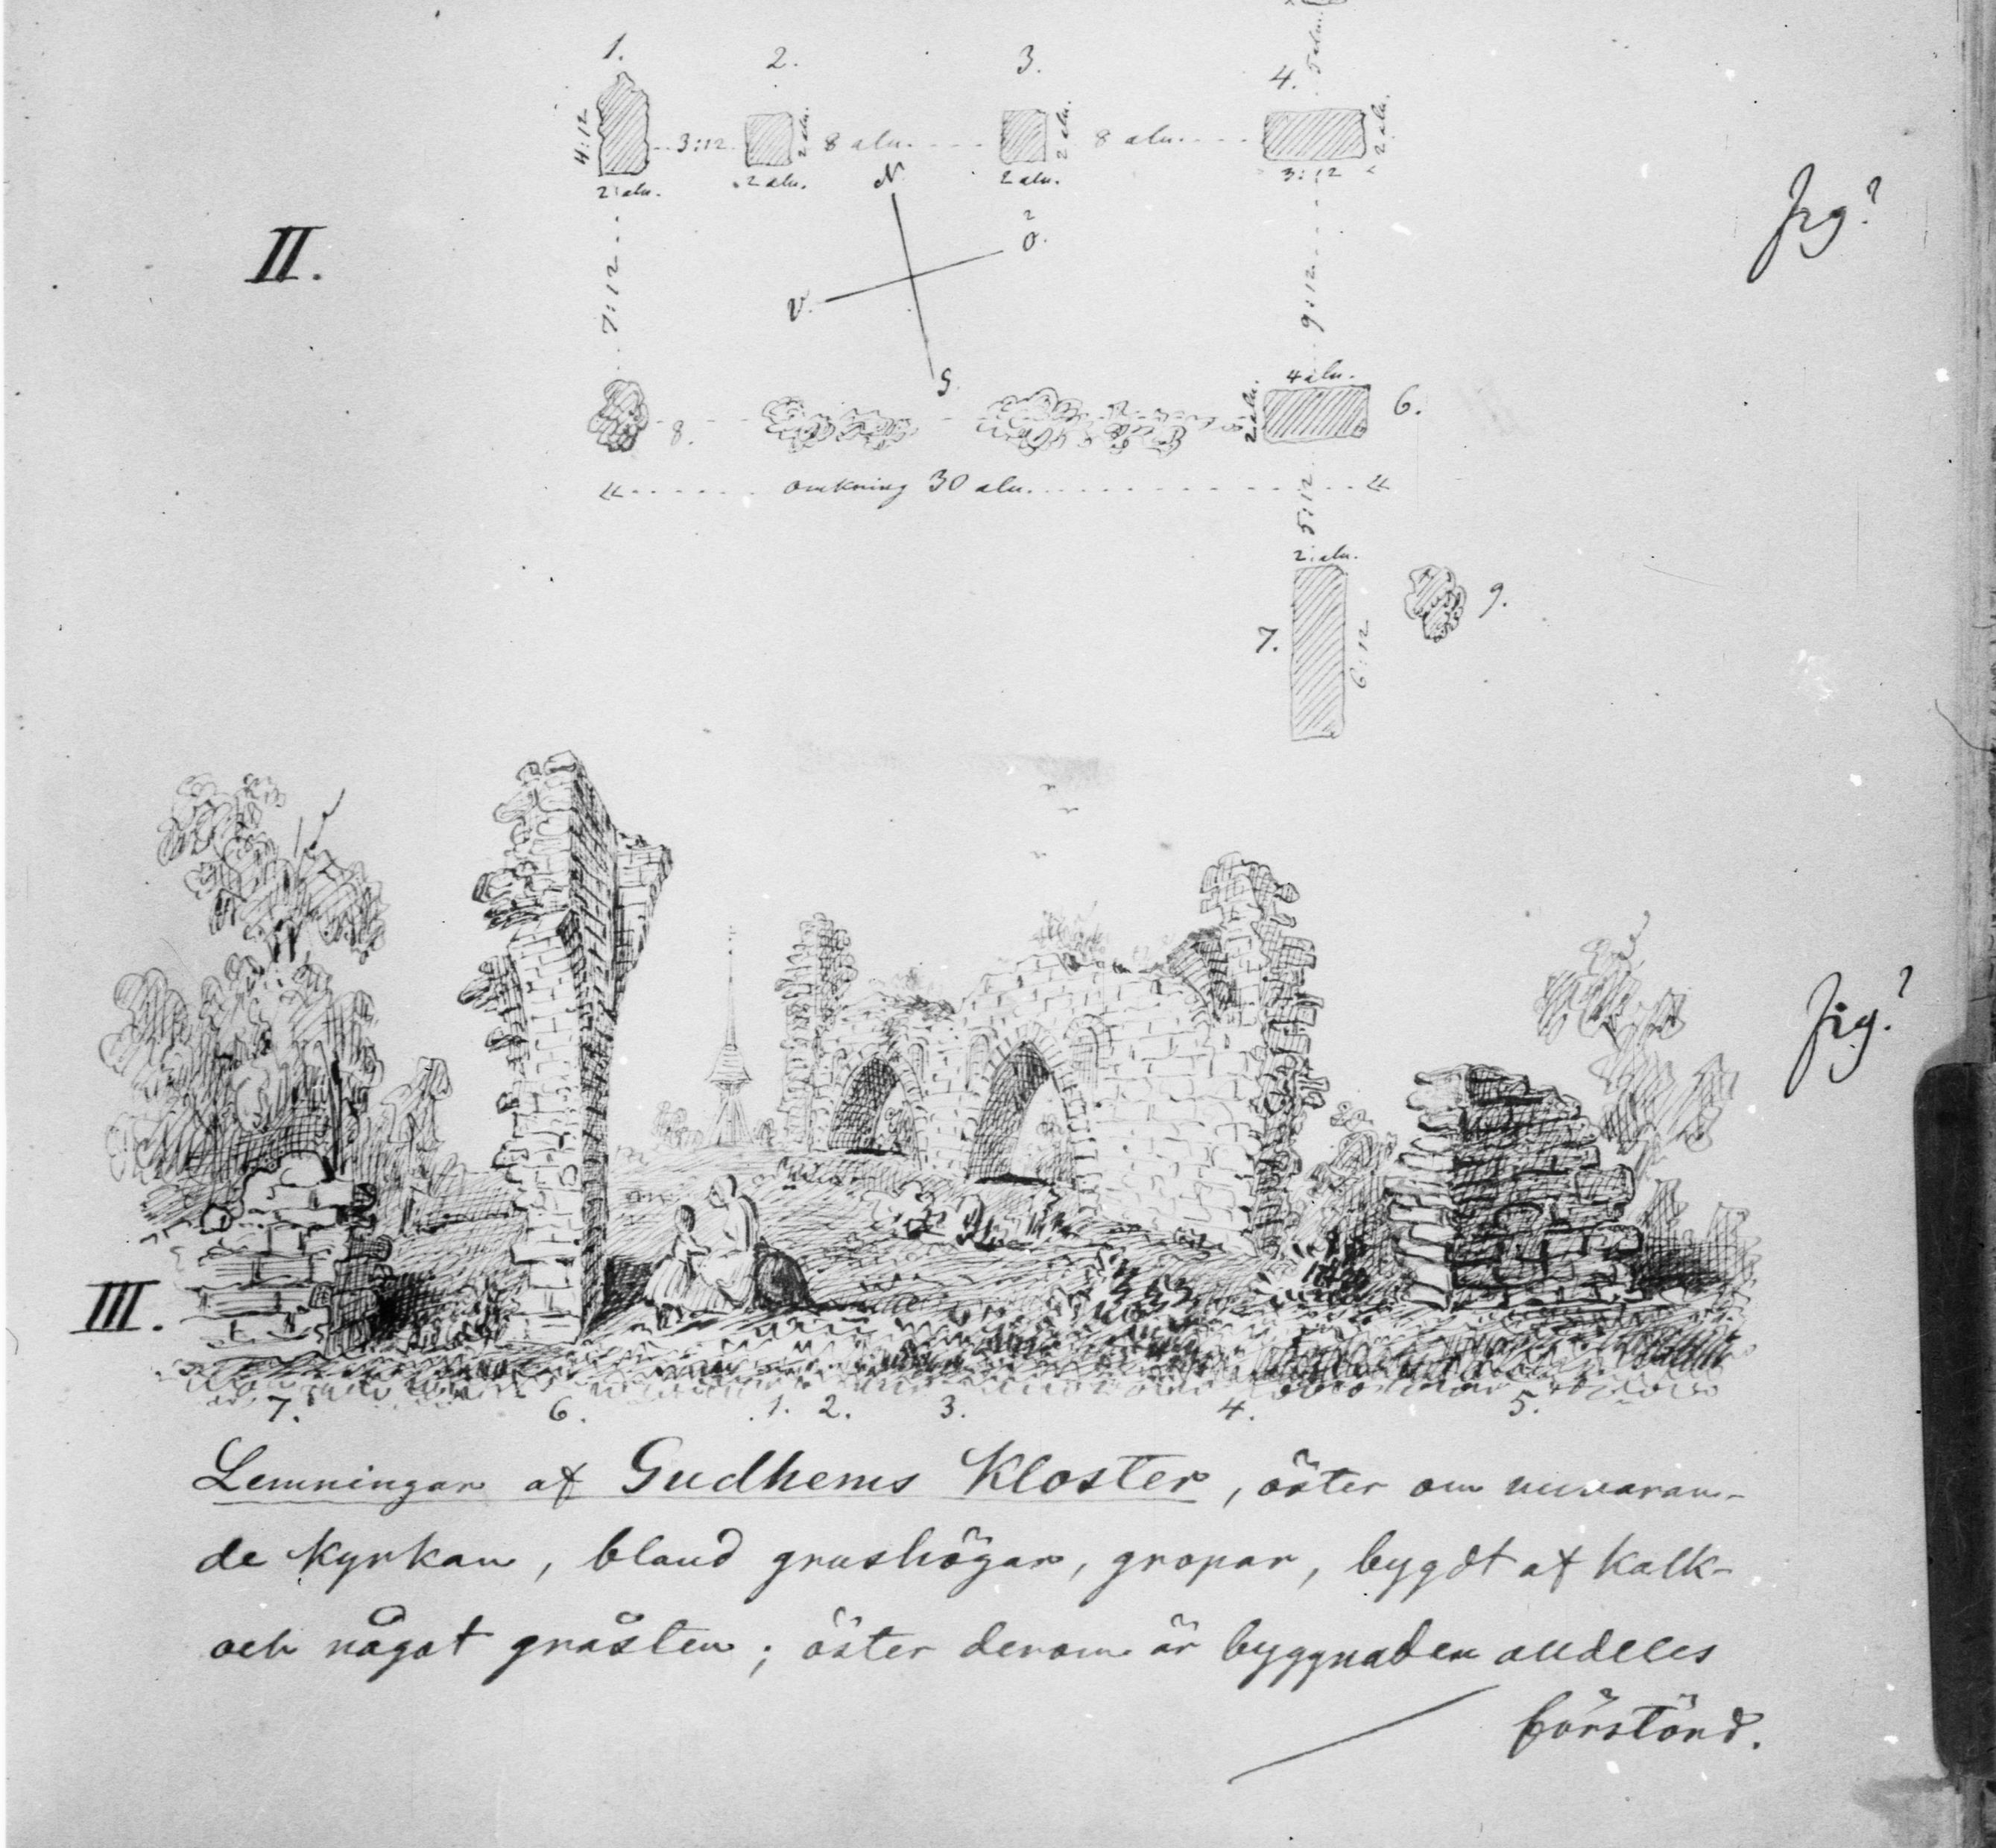 5 aln.
1. 2. 3. 4.
4:12 3:12 2 aln. 8 aln. 2 aln. 8 aln. 2 aln.
2 aln. 2 aln. 2 aln. 3:12
N
Ö.
II.
Fig?
V.
7:12 9:12
S.
4 aln.
8. 2 aln. 6.
omkring 30 aln.
5:12
2 aln.
7. 6:12 9.
Fig?
III.
7. 6. 1. 2. 3. 4. 5.
Lemningar af Gudhems Kloster, öster om nuvaran-
de kyrkan, bland grushögar, gropar, bygdt af kalk-
och något gråsten; öster derom är byggnaden alldeles
förstörd.